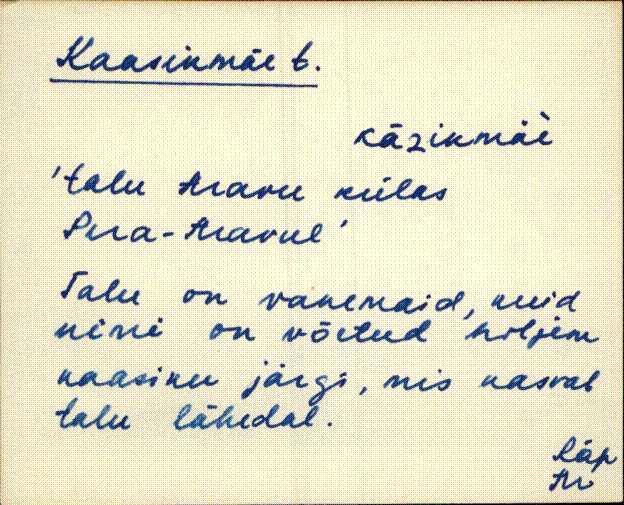 Kaasikmäe t.
kāzikmäè
'talu Aravu külas
Sura-Aravul'
Talu on vanemaid, kuid
nimi on võetud hiljem
kaasiku järgi, mis kasvab
talu lähedal.
Räp
Ar